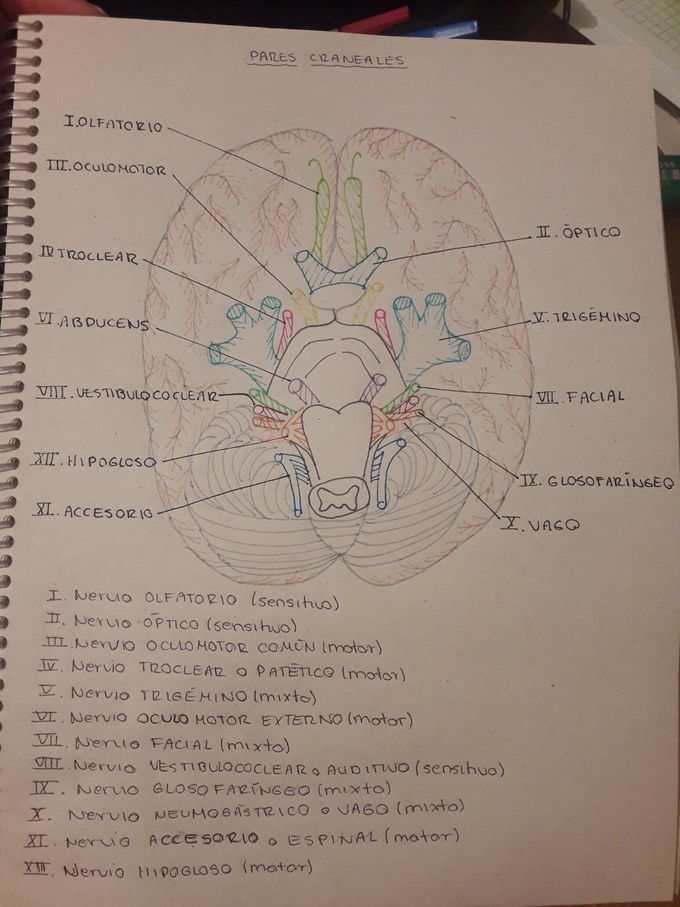 PARES CRANEALES
I. OLFATORIO
III. OCULOMOTOR
IV TROCLEAR
II. ÓPTICO
VI. ABDUCENS
V. TRIGÉMINO
VIII. VESTIBULOCOCLEAR
VII. FACIAL
XII. HIPOGLOSO
IX. GLOSOFARÍNGEO
XI. ACCESORIO
X. VAGO
I. Nervio OLFATORIO (sensitivo)
II. Nervio ÓPTICO (sensitivo)
III. Nervio OCULOMOTOR COMÚN (motor)
IV. Nervio TROCLEAR o PATÉTICO (motor)
V. Nervio TRIGÉMINO (mixto)
VI. Nervio OCULO MOTOR EXTERNO (motor)
VII. Nervio FACIAL (mixto)
VIII. Nervio VESTIBULOCOCLEAR o AUDITIVO (sensitivo)
IX. Nervio GLOSOFARÍNGEO (mixto)
X. Nervio NEUMOGÁSTRICO o VAGO (mixto)
XI. Nervio ACCESORIO o ESPINAL (motor)
XII. Nervio HIPOGLOSO (motor)